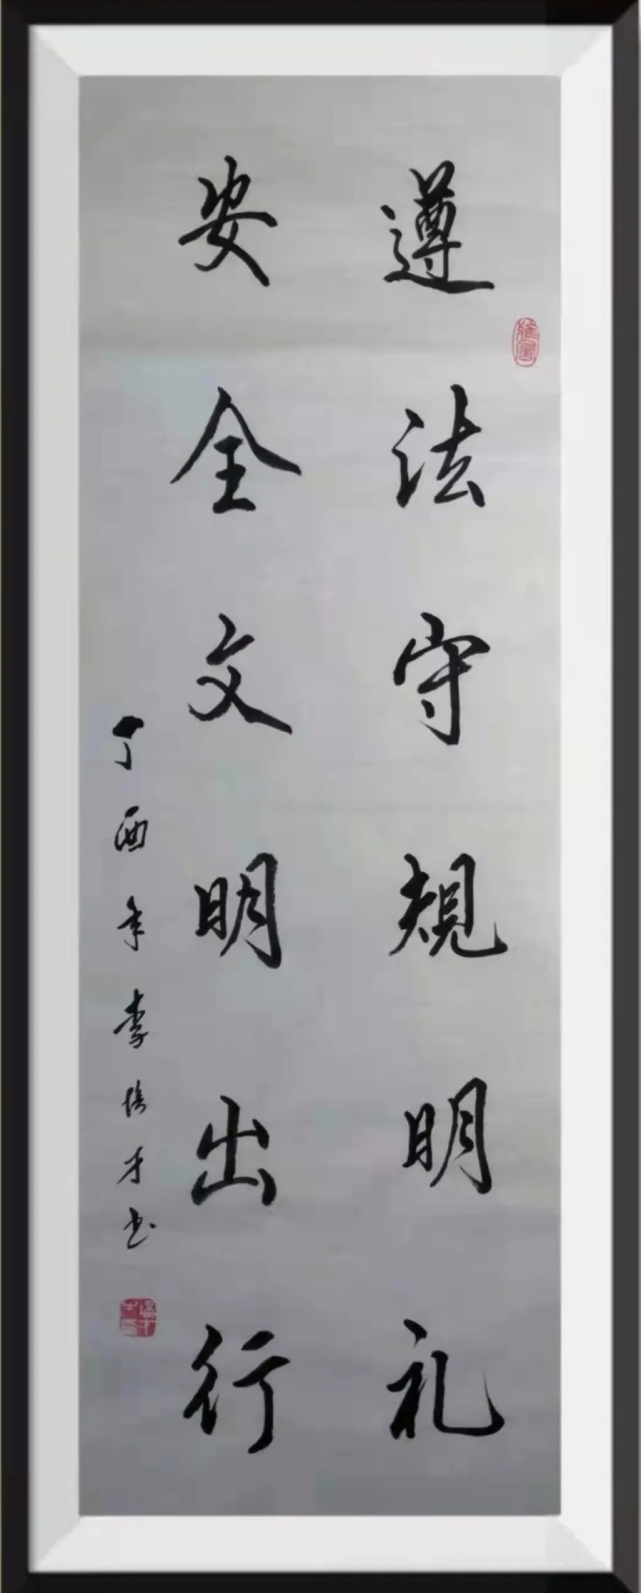 遵法守規明礼
安全文明出行
丁酉年李培才书